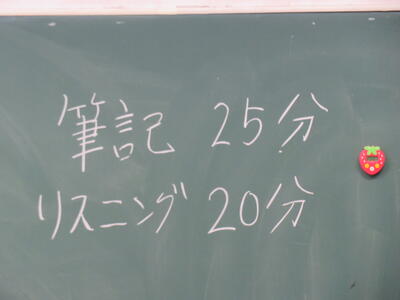 筆記 25分
リスニング 20分